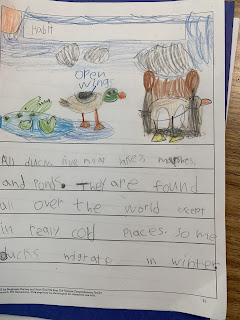 Habit
open
wings
All ducks live near lakes marshes,
and ponds. They are found
all over the world except
in really cold places. some
ducks migrate in winter.